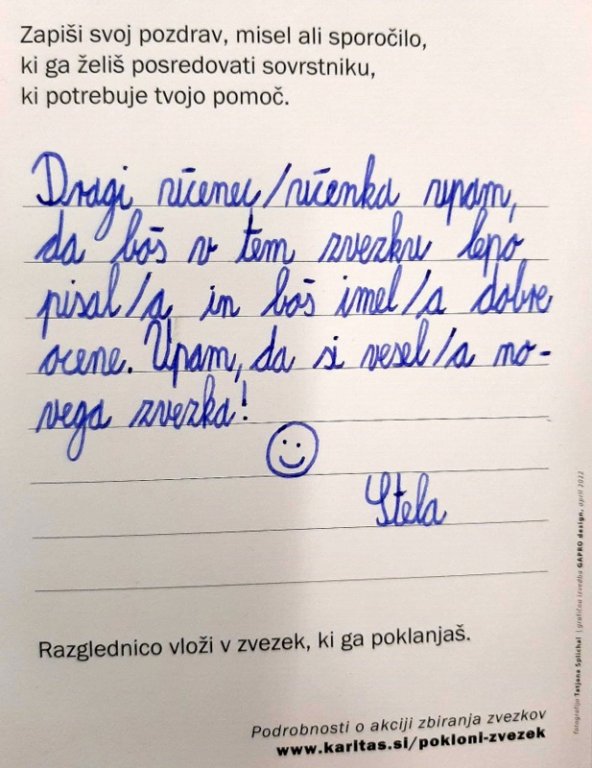 Zapiši svoj pozdrav, misel ali sporočilo,
ki ga želiš posredovati sovrstniku,
ki potrebuje tvojo pomoč.
Dragi učenec/učenka upam,
da boš v tem zvezku lepo
pisal/a in boš imel/a dobre
ocene. Upam, da si vesel/a no-
vega zvezka!
Stela
Razglednico vloži v zvezek, ki ga poklanjaš.
Podrobnosti o akciji zbiranja zvezkov
www.karitas.si/pokloni-zvezek
fotografije Tatjana Splichal | grafična izvedba GAPRO design, april 2022